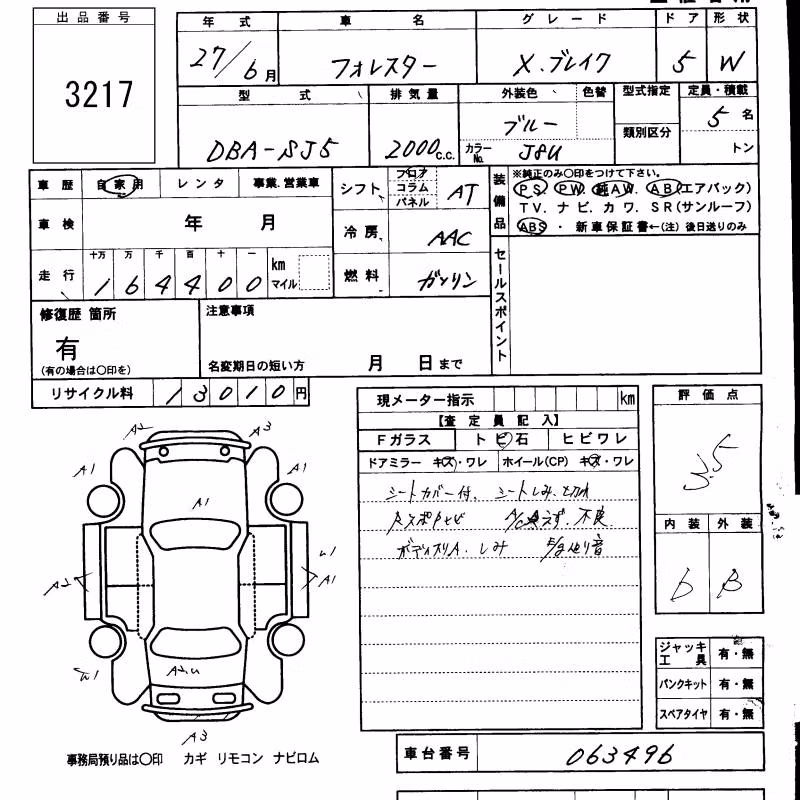 出品番号
3217
年式 車名 グレード ドア 形状
27/6月 フォレスター X.ブレイク 5 W
型式 排気量 外装色 色替 型式指定 定員・積載
DBA-SJ5 2000c.c. ブルー 類別区分 5名
カラーNo. J8U トン
車歴 自家用 レンタ 事業.営業車
シフト フロア コラム パネル AT
装備品 ※純正のみ〇印をつけて下さい。
PS PW. 純AW. AB(エアバック)
TV. ナビ. カワ. SR(サンルーフ)
ABS ・ 新車保証書←(注) 後日送りのみ
車検 年 月
冷房 AAC
走行 十万 万 千 百 十 一
164400 km マイル
燃料 ガソリン
セールスポイント
修復歴 箇所
有
(有の場合は〇印を)
注意事項
名変期日の短い方 月 日まで
リサイクル料 13010円
現メーター指示 km
【査定員記入】
Fガラス トビ石 ヒビワレ
ドアミラー キズ・ワレ ホイール(CP) キズ・ワレ
シートカバー付. シートしみ.
不良
しみ 音
評価点
3.5
内装 外装
b B
A2 A3
A1 A1
A1
A2 A1
A2.u
A3
ジャッキ工具 有・無
パンクキット 有・無
スペアタイヤ 有・無
事務局預り品は〇印 カギ リモコン ナビロム
車台番号 063496